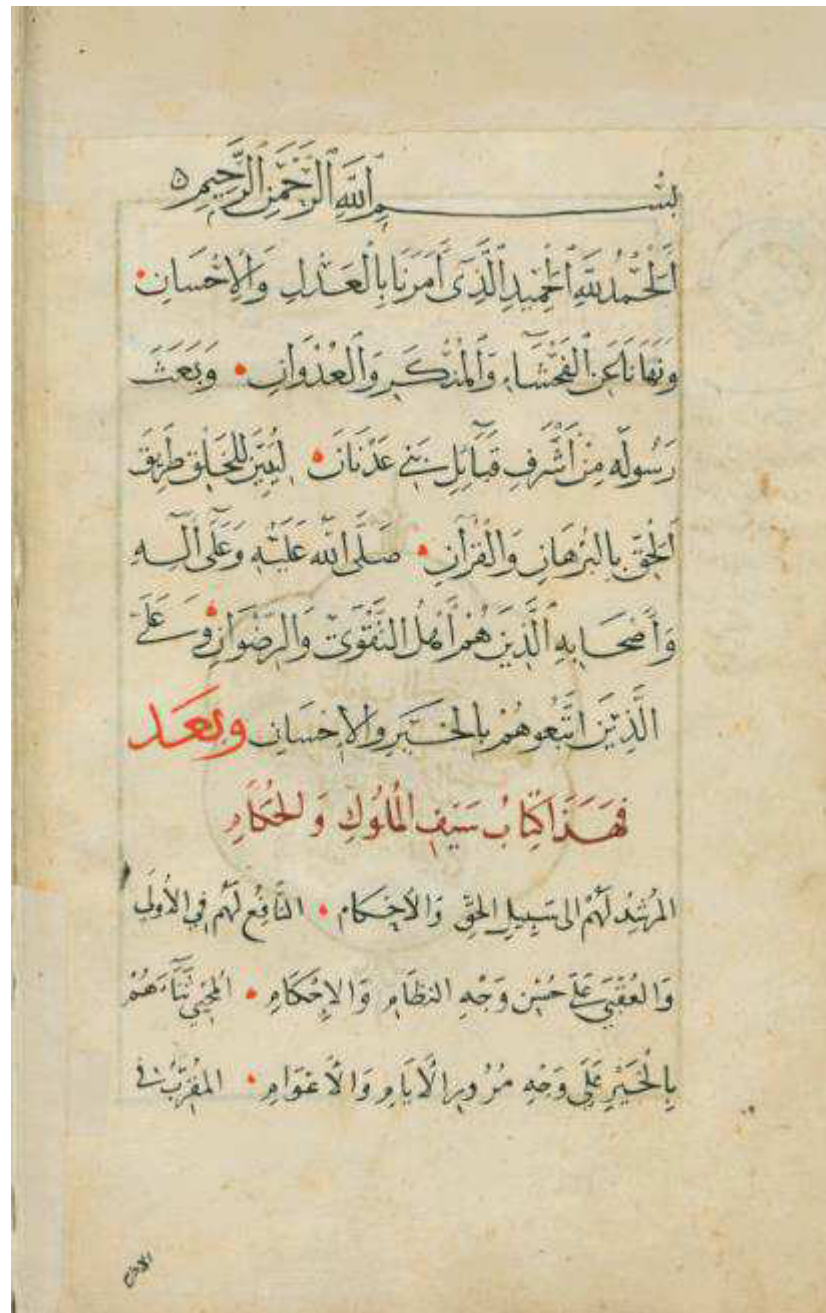 بِسْمِ اللَّهِ الرَّحْمَنِ الرَّحِيمِ
اَلْحَمْدُ لِلَّهِ الْحَمِيدِ الَّذِي أَمَرَنَا بِالْعَدْلِ وَالْإِحْسَانِ
وَنَهَانَا عَنِ الْفَحْشَاءِ وَالْمُنْكَرِ وَالْعُدْوَانِ وَبَعَثَ
رَسُولَهُ مِنْ أَشْرَفِ قَبَائِلِ بَنِي عَدْنَانَ لِيُبَيِّنَ لِلْخَلْقِ طَرِيقَ
الْحَقِّ بِالْبُرْهَانِ وَالْقُرْآنِ صَلَّى اللَّهُ عَلَيْهِ وَعَلَى آلِهِ
وَأَصْحَابِهِ الَّذِينَ هُمْ أَهْلُ التَّقْوَى وَالرِّضْوَانِ وَعَلَى
الَّذِينَ اتَّبَعُوهُمْ بِالْخَيْرِ وَالْإِحْسَانِ وَبَعْدُ
فَهَذَا كِتَابُ سَيْفِ الْمُلُوكِ وَالْحُكَّامِ
الْمُرْشِدُ لَهُمْ إِلَى سَبِيلِ الْحَقِّ وَالْأَحْكَامِ النَّافِعُ لَهُمْ فِي الْأُولَى
وَالْعُقْبَى عَلَى حُسْنِ وَجْهِ النِّظَامِ وَالْإِحْكَامِ الْمُحْيِي ثَنَاءَهُمْ
بِالْخَيْرِ عَلَى وَجْهِ مُرُورِ الْأَيَّامِ وَالْأَعْوَامِ الْمُقَرِّبُ فِي